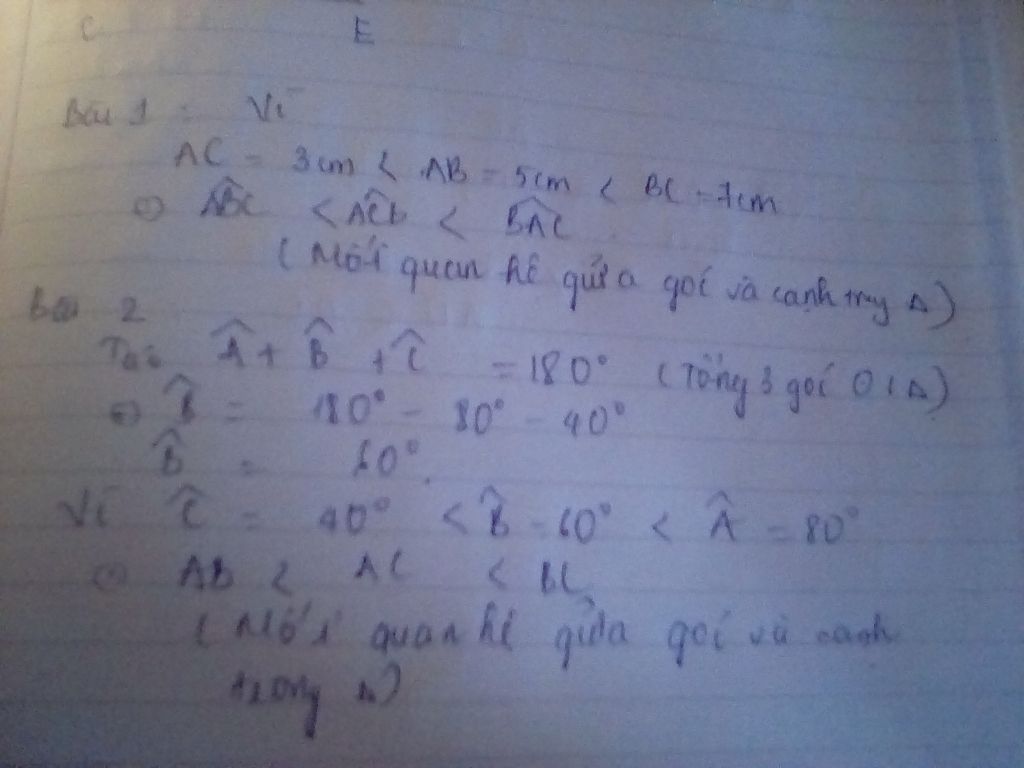 C E
Bài 1 : Vì
AC = 3cm < AB = 5cm < BC = 7cm
=) ABC^ < ACB^ < BAC^
( Mối quan hê giữa goí và cạnh trog Δ )
Bài 2
Ta có Â + B̂ + Ĉ = 180° ( Tổng 3 goí Δ )
=) B̂ = 180° - 80° - 40°
B̂ = 60°.
Vì Ĉ = 40° < B̂ = 60° < Â = 80°
=) AB < AC < BC
( Mối quan hê giữa goí và canh
trong Δ )